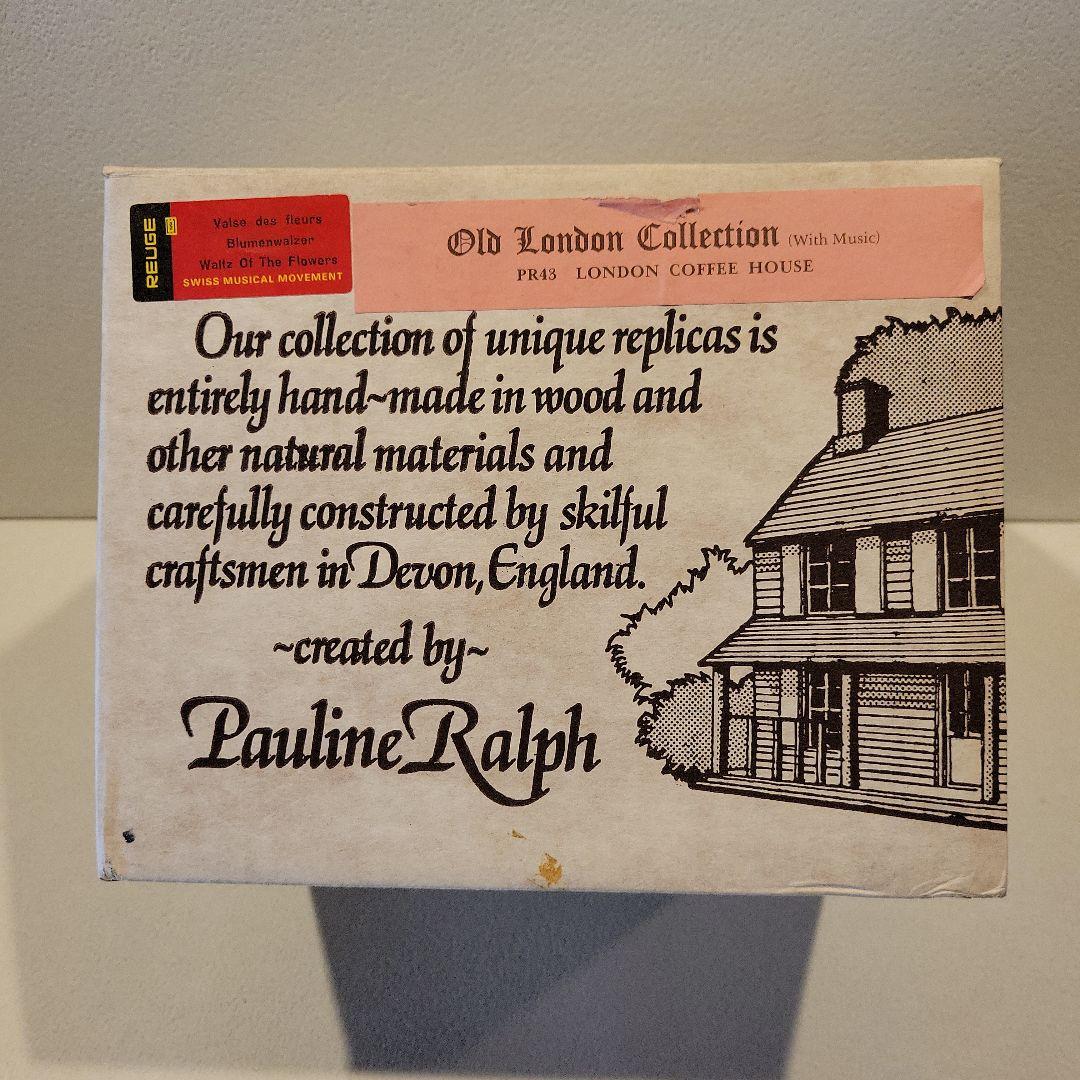 REUGE
Valse des fleurs
Blumenwalzer
Waltz Of The Flowers
SWISS MUSICAL MOVEMENT
Old London Collection (With Music)
PR43 LONDON COFFEE HOUSE
Our collection of unique replicas is
entirely hand~made in wood and
other natural materials and
carefully constructed by skilful
craftsmen in Devon, England.
~created by~
Pauline Ralph